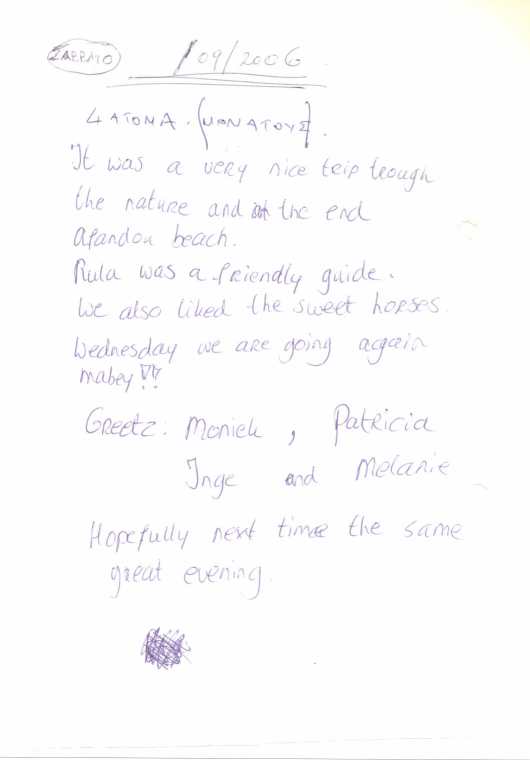 ΣΑΒΒΑΤΟ 1/09/2006
4 ΑΤΟΜΑ. (ΜΟΝΑ ΤΟΥΣ).
It was a very nice trip trough
the nature and at the end
afandou beach.
Rula was a friendly guide.
We also liked the sweet horses.
Wednesday we are going again
mabey !!
Greetz: Moniek, Patricia
Inge and Melanie
Hopefully next time the same
great evening.